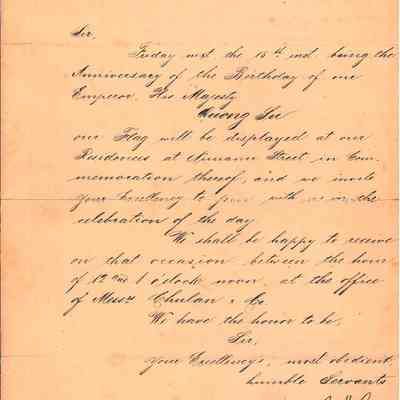 Sir,
Friday next the 15th inst being the
Anniversary of the Birthday of our
Emperor, His Majesty
Quong Su
our Flag will be displayed at our
Residences at Nuuanu Street, in Com-
memoration thereof, and we invite
your Excellency to join with us in the
celebration of the day
We shall be happy to receive
on that occasion between the hour
of 12 and 1 o'clock noon, at the office
of Messrs Chulan & Co.
We have the honor to be,
Sir,
your Excellency's, most obedient
humble Servants